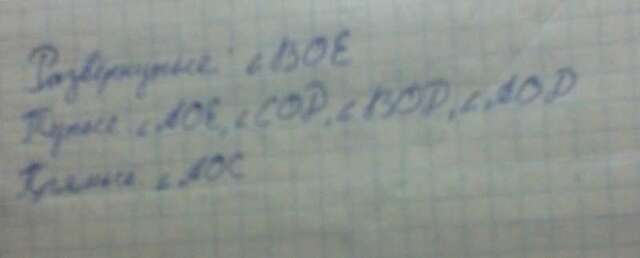 Развёрнутые ∠BOE
Тупые ∠AOE, ∠COD, ∠BOD, ∠AOD
Прямые ∠AOC